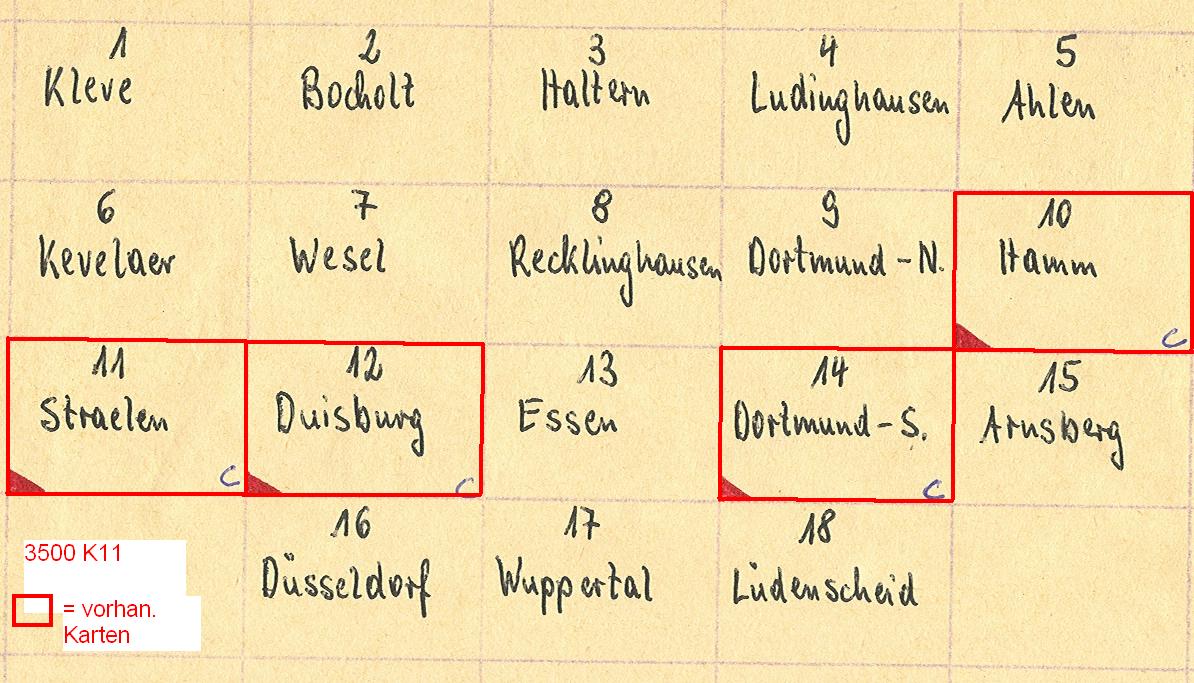 1
Kleve
2
Bocholt
3
Haltern
4
Ludinghausen
5
Ahlen
6
Kevelaer
7
Wesel
8
Recklinghausen
9
Dortmund - N.
10
Hamm
C
11
Straelen
C
12
Duisburg
C
13
Essen
14
Dortmund - S.
C
15
Arnsberg
16
Düsseldorf
17
Wuppertal
18
Lüdenscheid
3500 K11
= vorhan.
Karten